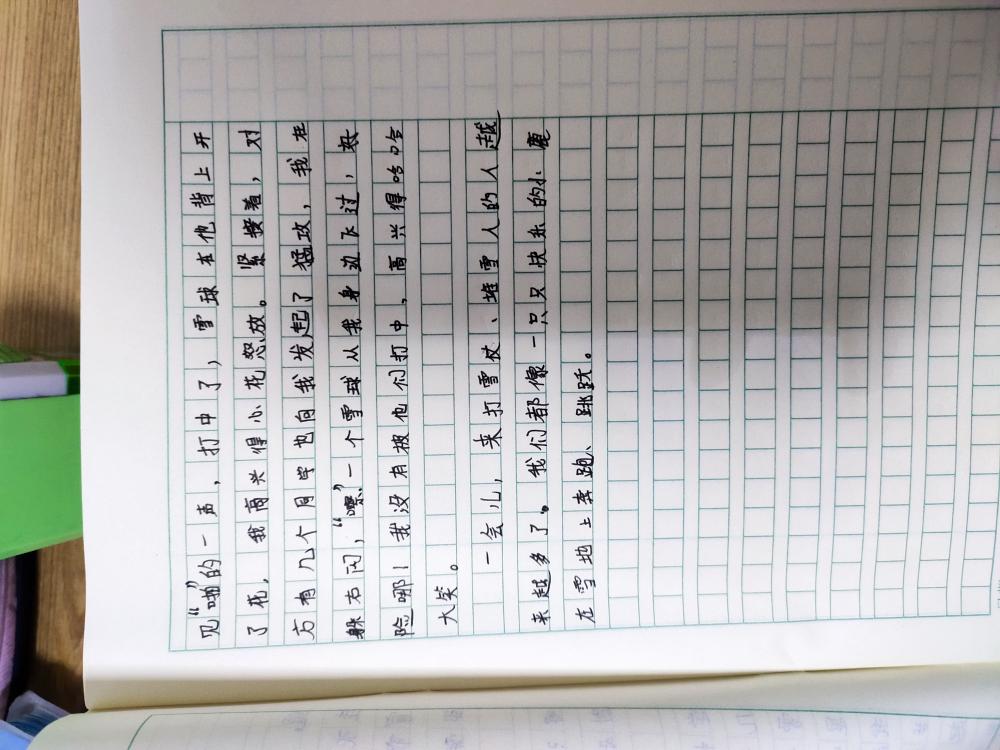 见“啪”的一声，打中了，雪球本他背上开
了花，我高兴得心花怒放。紧接着，对
方有几个同学也向我发起了猛攻，我左
躲右闪，“嚓”一个雪球从我身边飞过，好
险哪！我没有被他们打中，高兴得哈哈
大笑。
一会儿，来打雪仗、堆雪人的人越
来越多了。我们都像一只只快乐的小鹿
在雪地上奔跑、跳跃。